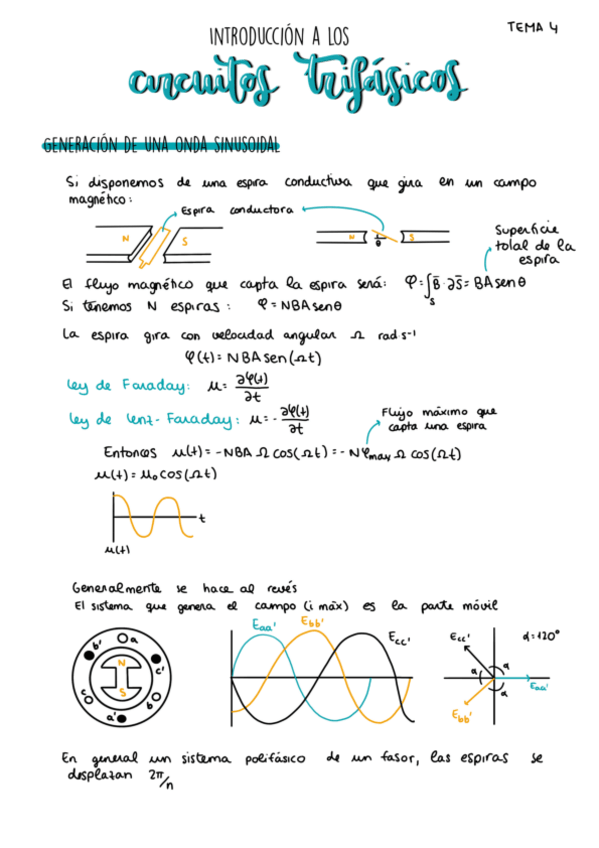 TEMA 4
INTRODUCCIÓN A LOS
circuitos trifásicos
GENERACIÓN DE UNA ONDA SINUSOIDAL
Si disponemos de una espira conductiva que gira en un campo
magnético:
Espira conductora
N S
N θ S
Superficie
total de la
espira
El flujo magnético que capta la espira será: φ=∫s B̄·∂S̄= BA senθ
Si tenemos N espiras: φ = NBA senθ
La espira gira con velocidad angular Ω rad s⁻¹
φ(t) = NBA sen(Ωt)
Ley de Faraday: μ = ∂φ(t)/∂t
Ley de Lenz-Faraday: μ = - ∂φ(t)/∂t
Flujo máximo que
capta una espira
Entonces μ(t) = -NBA Ω cos(Ωt) = -Nφmax Ω cos(Ωt)
μ(t) = μ₀ cos(Ωt)
t
μ(t)
Generalmente se hace al revés
El sistema que genera el campo (i máx) es la parte móvil
b' a
N
c'
S
c b
a'
Eaa' Ebb' Ecc'
Ecc' α=120°
α α
Eaa'
α
Ebb'
En general un sistema polifásico de un fasor, las espiras se
desplazan 2π/n